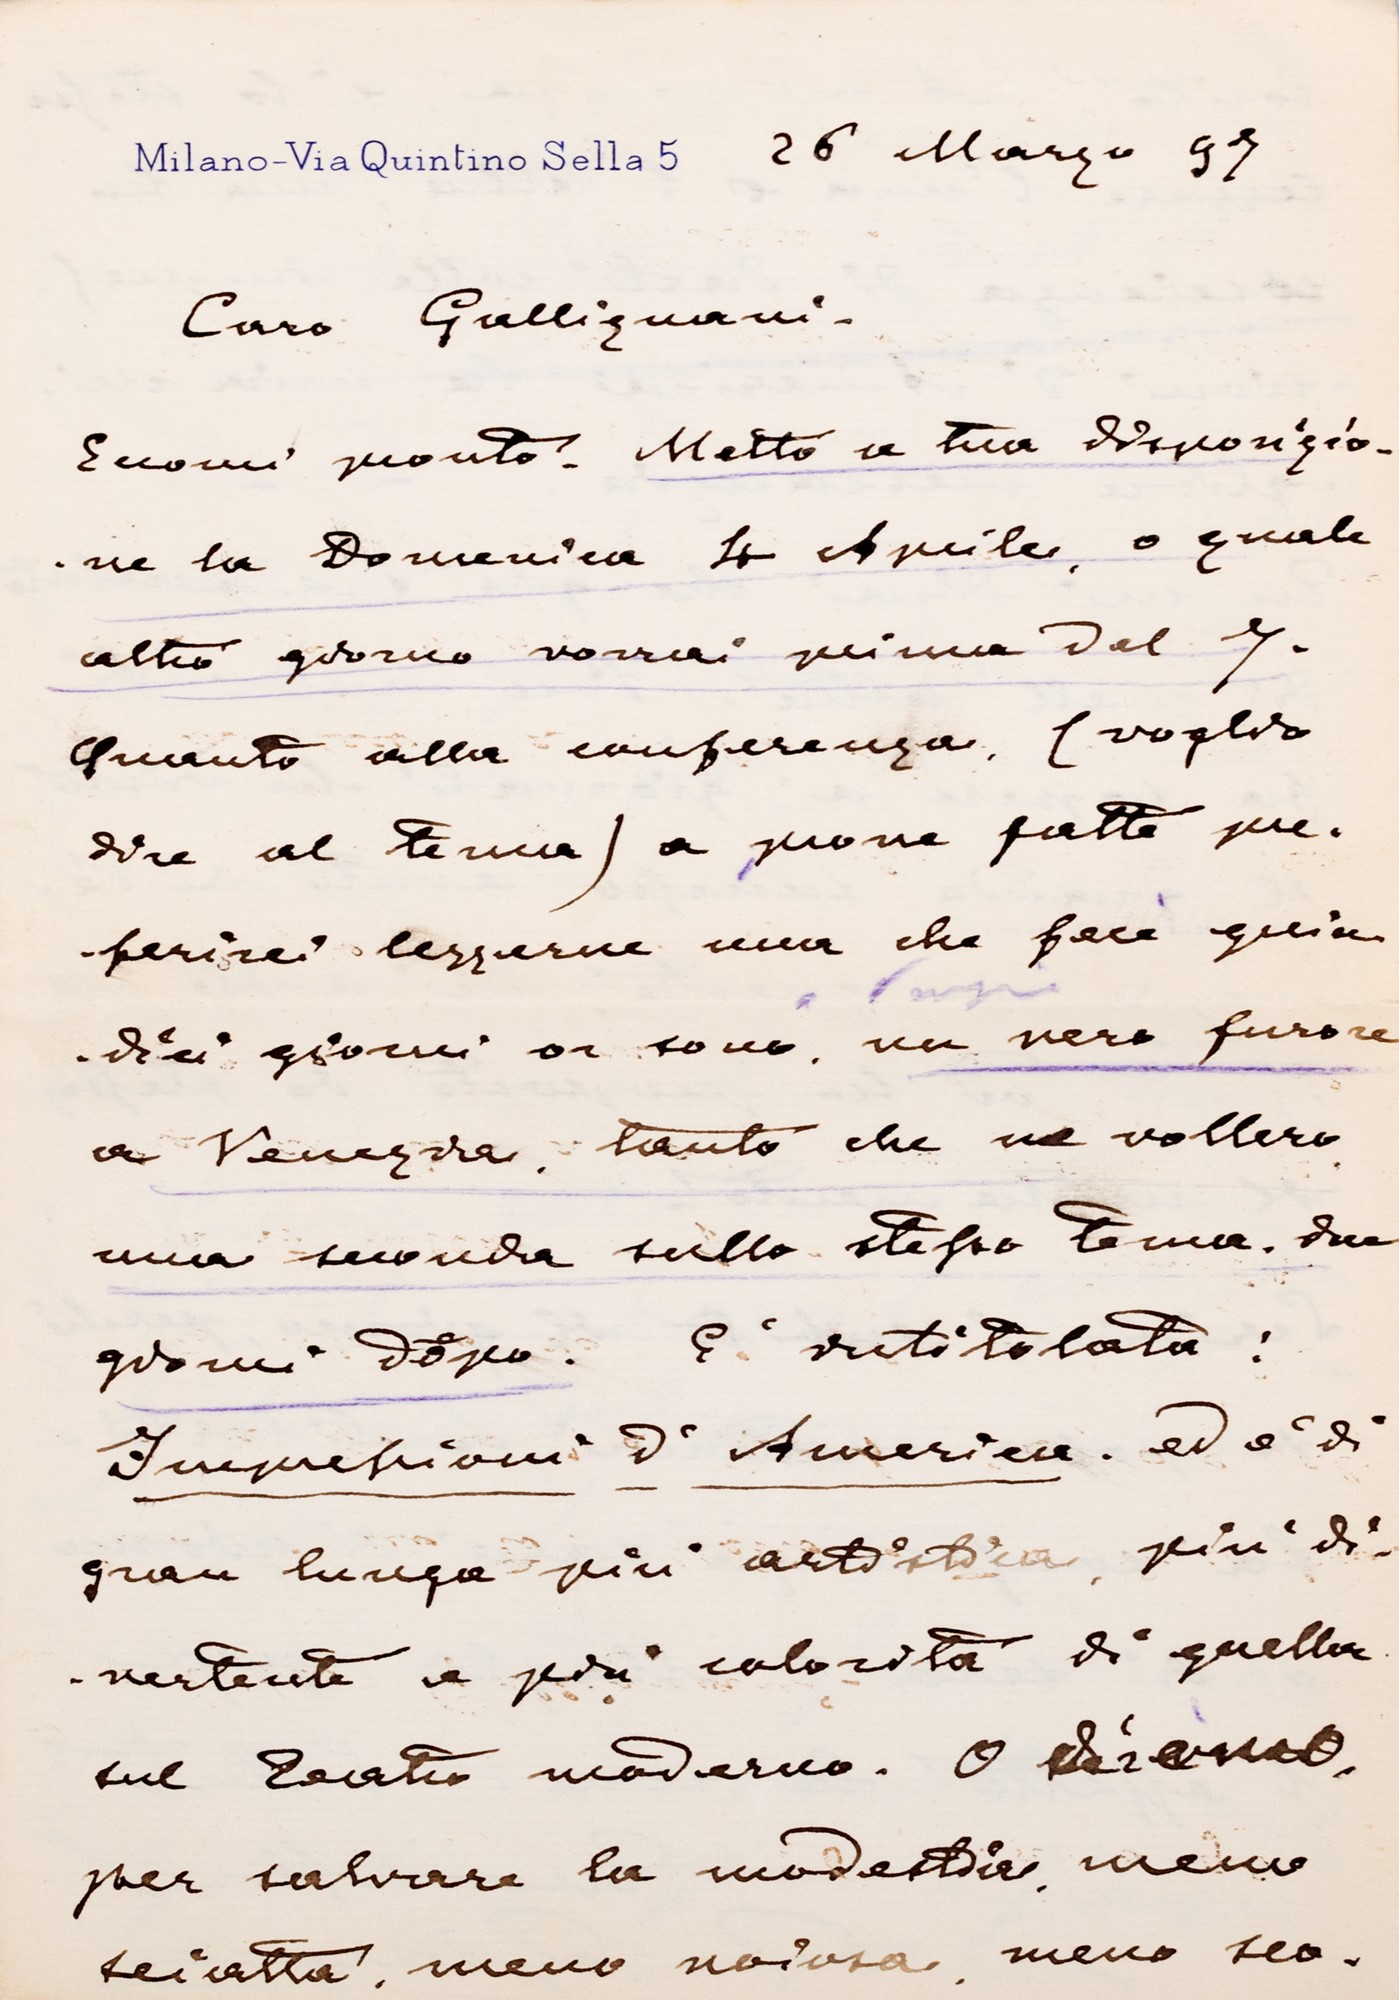 Milano-Via Quintino Sella 5 26 Marzo 97
Caro Gallignani -
Eccomi pronto. Metto a tua disposizio-
-ne la Domenica 4 Aprile, o quale
altro giorno vorrai prima del 7.
Quanto alla conferenza, (voglio
dire al tema) a prove fatte pre-
-ferirei leggerne una che fece quin
-dici giorni or sono, un vero furore
a Venezia, tanto che ne vollero
una seconda sullo stesso tema, due
giorni dopo. E' intitolata:
Impressioni d'America. ed è di
gran lunga più artistica, più di-
-vertente e più colorita di quella
sul Teatro moderno. O diremo,
per salvare la modestia, meno
sciatta, meno noiosa, meno sco-